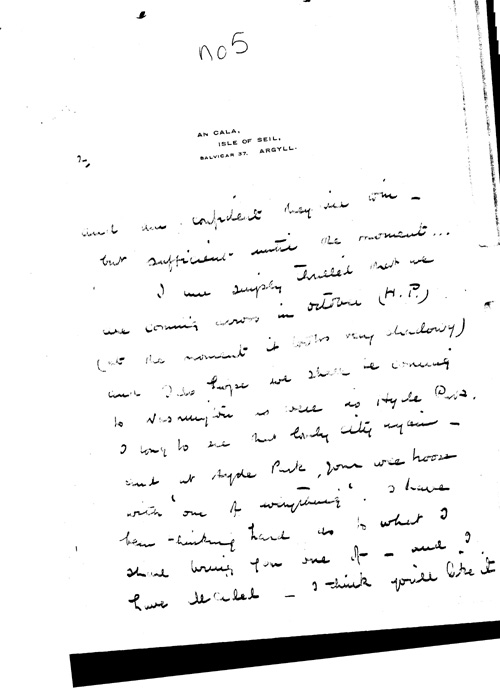 no 5
AN CALA,
ISLE OF SEIL,
BALVICAR 37. ARGYLL.
2/
and am confident they will win –
but sufficient until the moment...
I am simply thrilled that we
are coming across in october (H.P.)
(at the moment it looks very shadowy)
and I do hope we shall be coming
to Washington as well as Hyde Park.
I long to see that lovely city again –
and at Hyde Park, your wee house
with "one of everything". I have
been thinking hard as to what I
shall bring you one of – and I
have decided – I think you'll like it